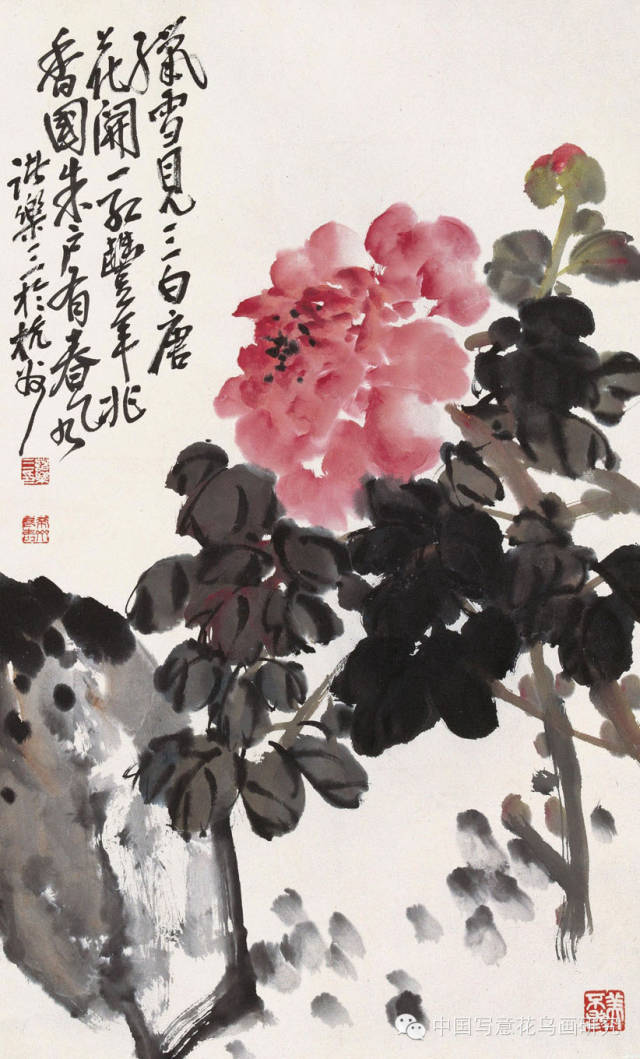 臘雪見三白唐
花開一紅豐年兆
香國朱戶有春風
諸樂三於杭州
中国写意花鸟画研究